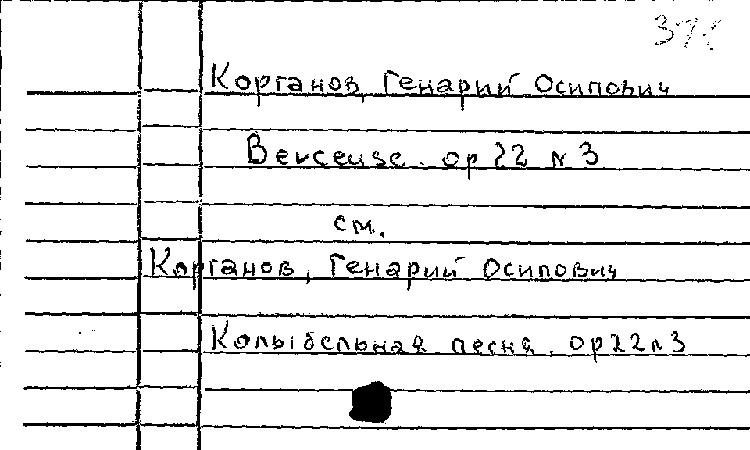 Корганов, Генарий Осипович
Berceuse. op 22 N 3
см.
Корганов, Генарий Осипович
Колыбельная песня. op 22 N 3